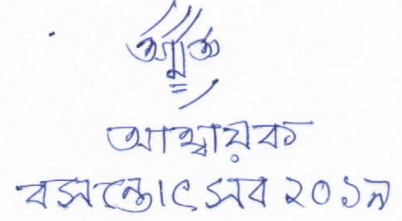 আহ্বায়ক
বসন্তোৎসব ২০১৯